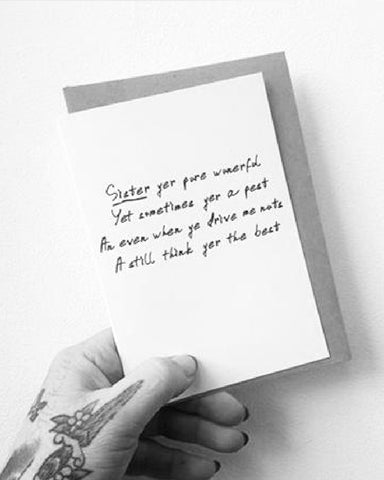 Sister yer pure wunerful
Yet sometimes yer a pest
An even when ye drive me nuts
A still think yer the best